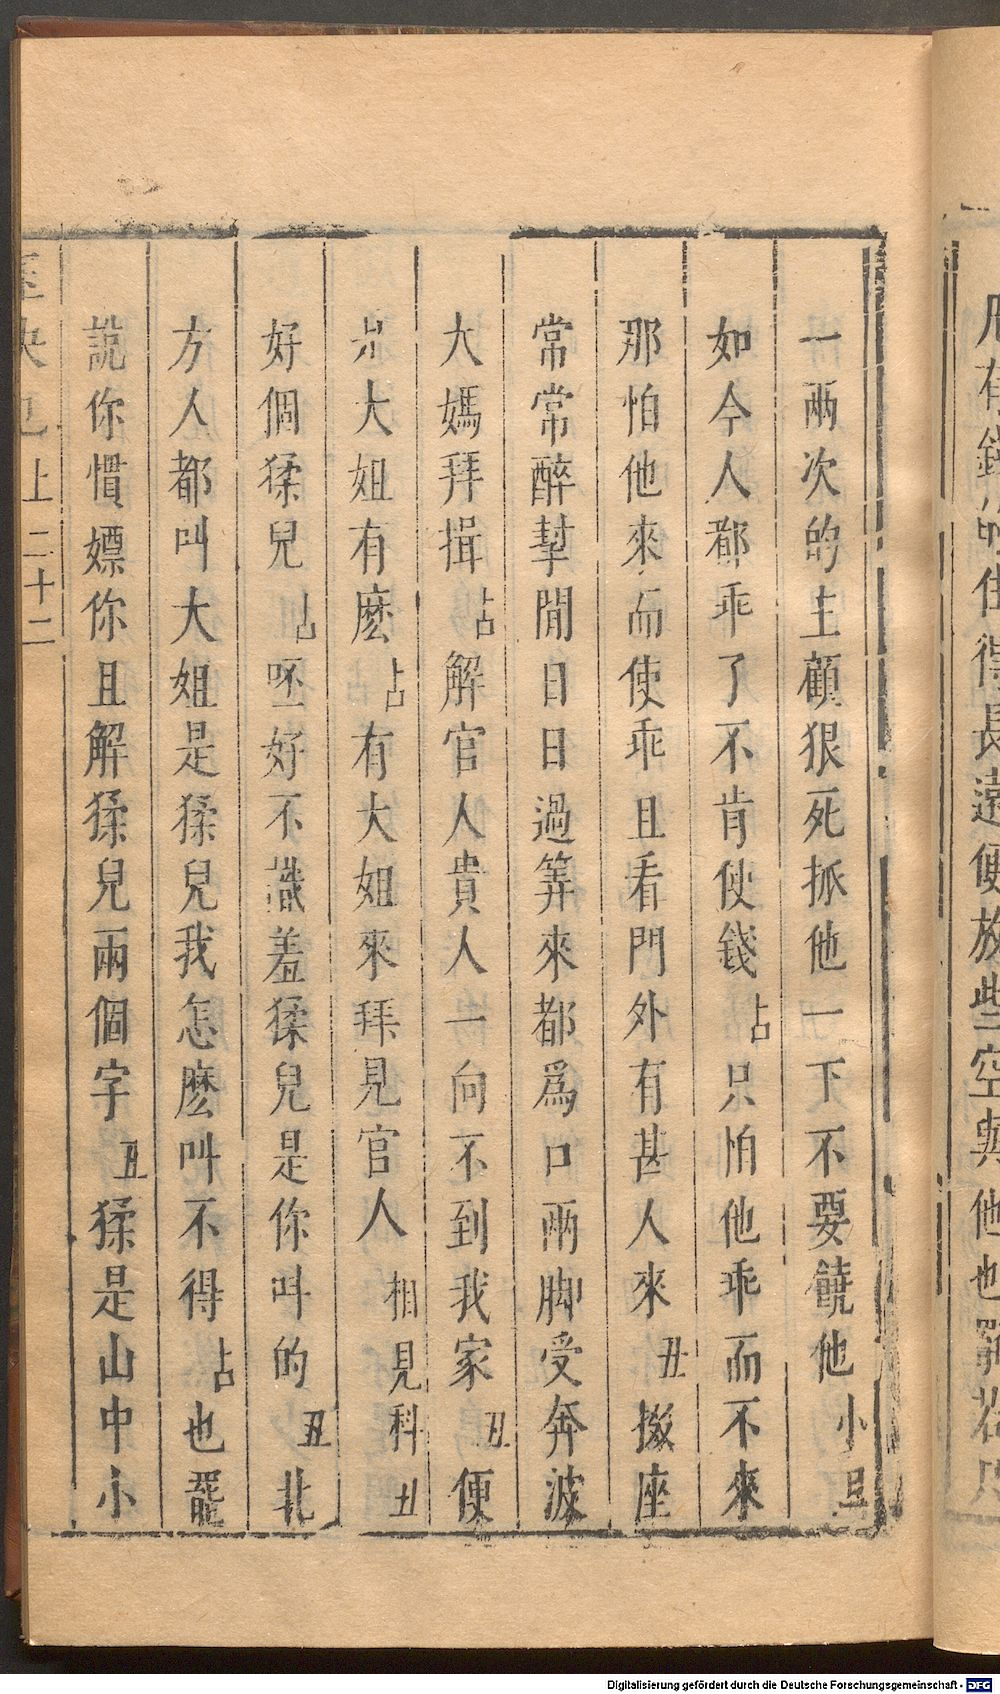 一兩次的主顧狠死抓他一下不要饒他小旦
如今人都乖了不肯使錢占只怕他乖而不來
那怕他來而使乖且看門外有甚人來丑掇座
常常醉掔閒日日過筭來都爲口兩脚受奔波
大媽拜揖占解官人貴人一向不到我家丑便
大姐有麽占有大姐來拜見官人相見科丑
好個猱兒占呸好不識羞猱兒是你叫的丑北
方人都叫大姐是猱兒我怎麽叫不得占也罷
說你慣嫖你且解猱兒兩個字丑猱是山中小
上 二十二
Digitalisierung gefördert durch die Deutsche Forschungsgemeinschaft - DFG